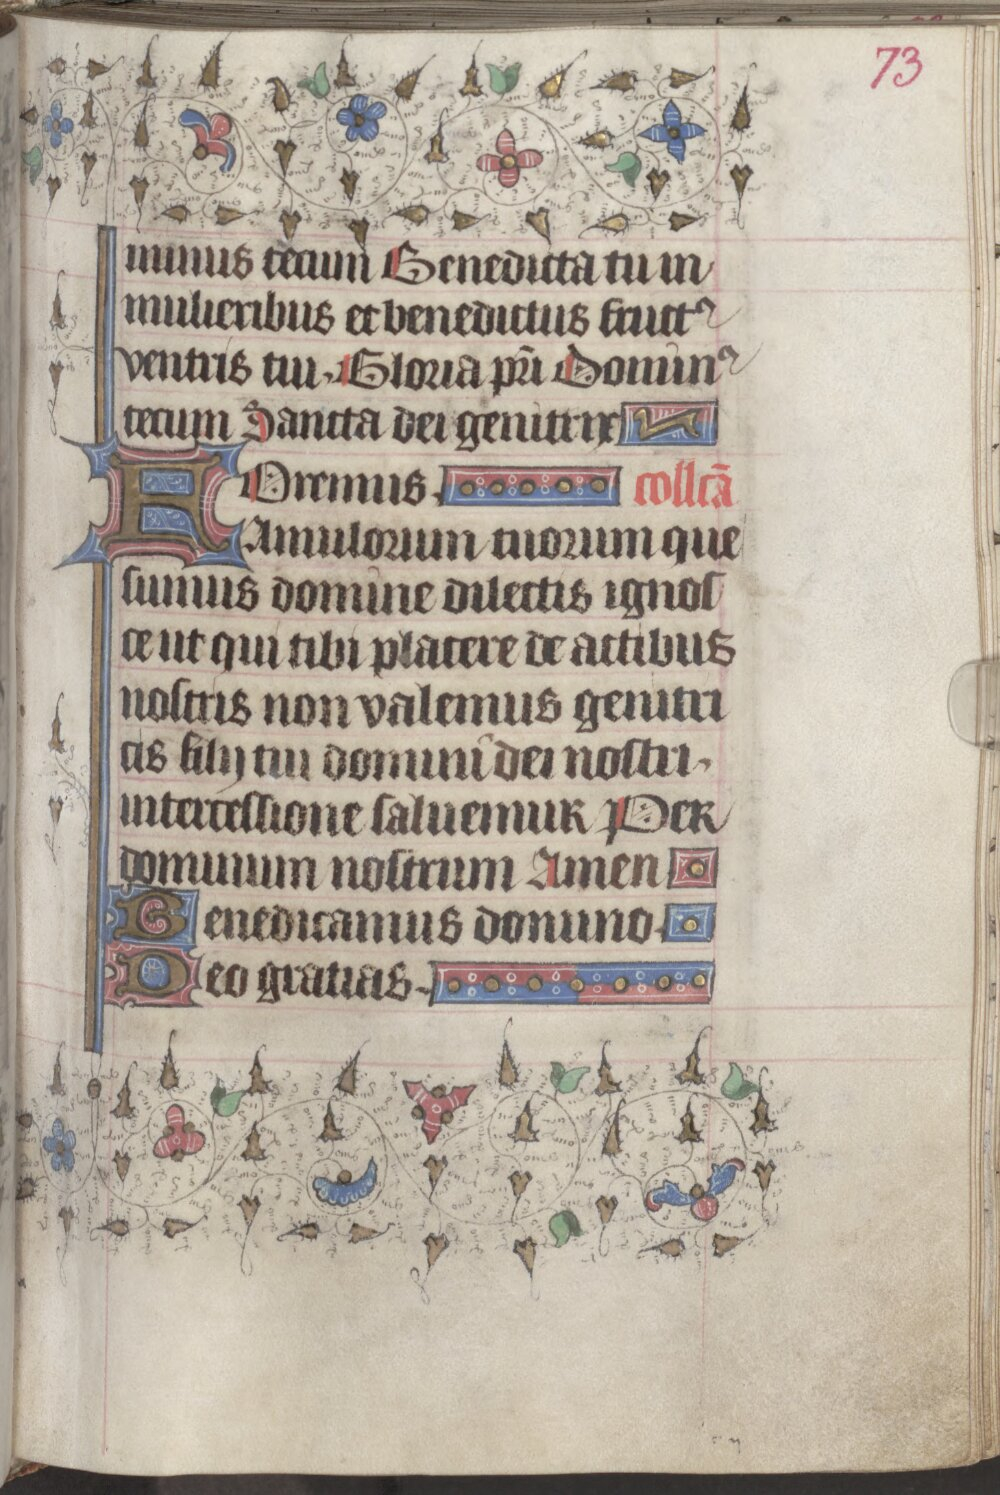 73
minus tecum Benedicta tu in
mulieribus et benedictus fructꝰ
ventris tui. Gloria pr̄i Dominꝰ
tecum Sancta dei genitrix
Oremus. coll̄cā
FAmulorum tuorum que
sumus domine dilectis ignos
ce ut qui tibi placere de actibus
nostris non valemus genitri
cis filij tui domini dei nostri.
intercessione saluemur Per
dominum nostrum Amen
Benedicamus domino.
Deo gratias.